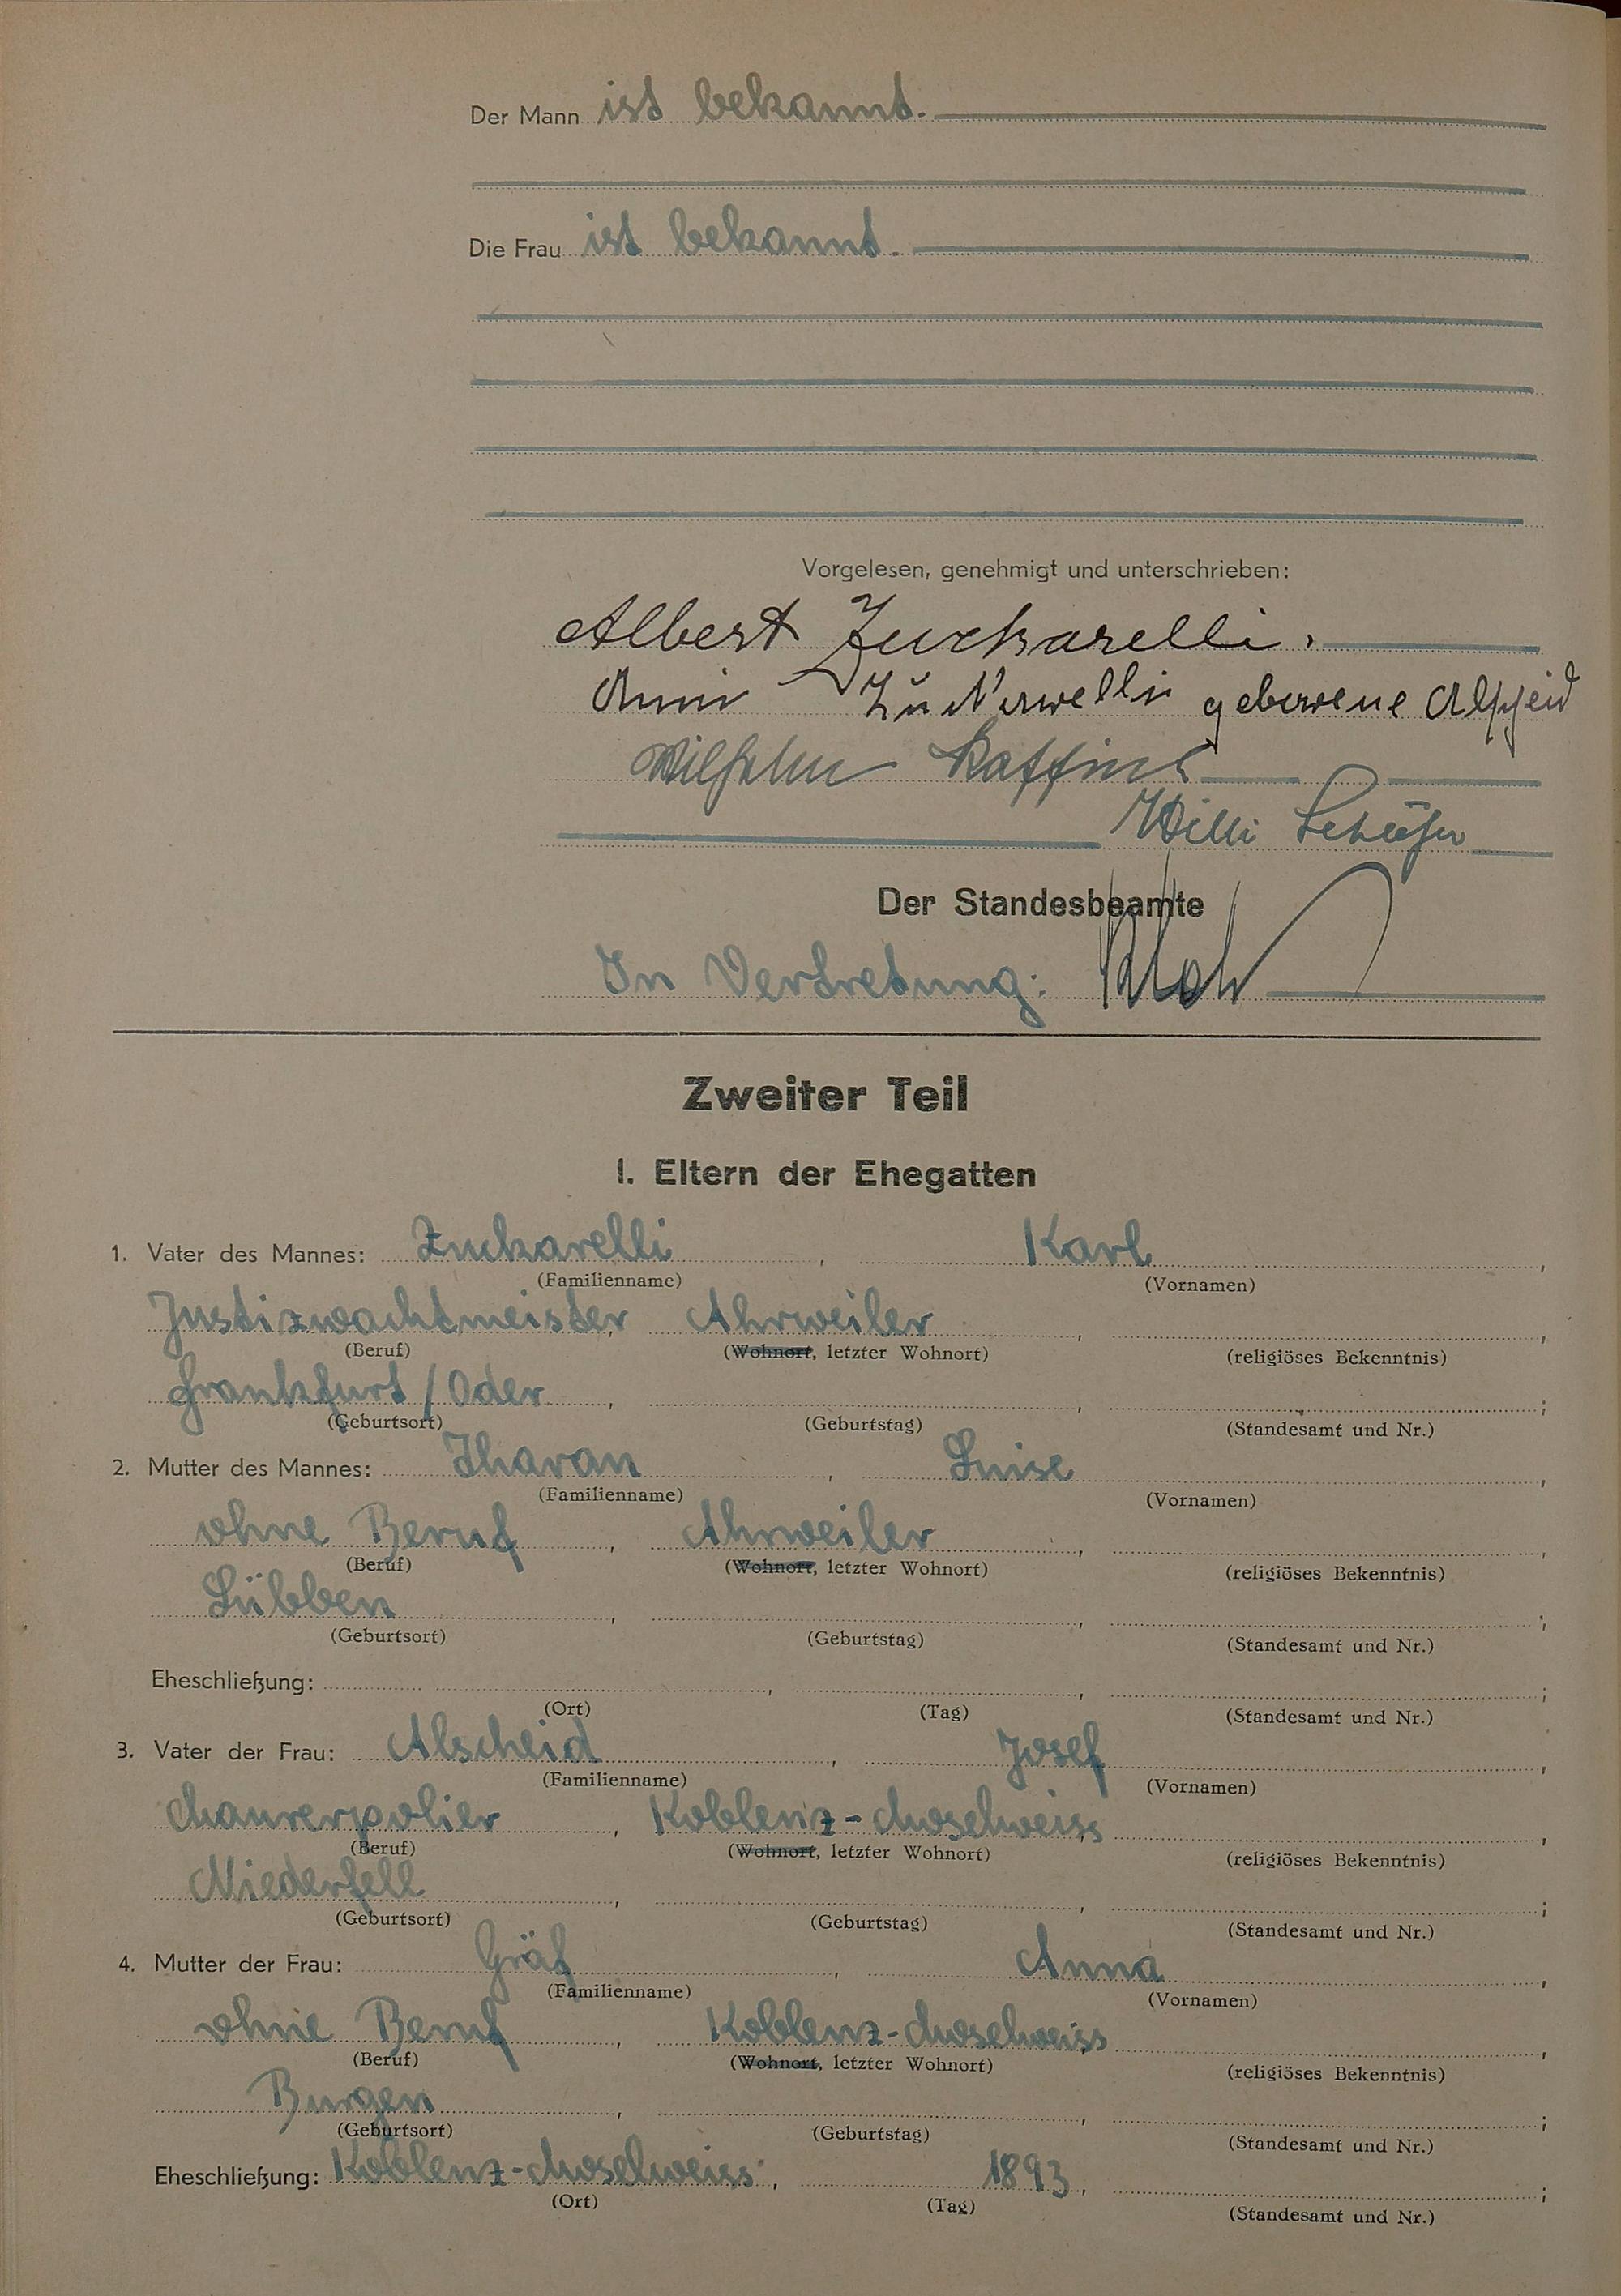 Der Mann ist bekannt.
Die Frau ist bekannt.
Vorgelesen, genehmigt und unterschrieben:
Albert Zuckarelli.
Zuckarelli geborene Alscheid
Wilhelm
Willi Schäfer
Der Standesbeamte
In Vertretung:
Zweiter Teil
I. Eltern der Ehegatten
1. Vater des Mannes: Zuckarelli, Karl,
(Familienname) (Vornamen)
Justizwachtmeister, Ahrweiler, ,
(Beruf) (Wohnort, letzter Wohnort) (religiöses Bekenntnis)
Frankfurt/Oder, , ;
(Geburtsort) (Geburtstag) (Standesamt und Nr.)
2. Mutter des Mannes: Tharan, Luise,
(Familienname) (Vornamen)
ohne Beruf, Ahrweiler, ,
(Beruf) (Wohnort, letzter Wohnort) (religiöses Bekenntnis)
Lübben, , ;
(Geburtsort) (Geburtstag) (Standesamt und Nr.)
Eheschließung: , , ;
(Ort) (Tag) (Standesamt und Nr.)
3. Vater der Frau: Alscheid, Josef,
(Familienname) (Vornamen)
Maurerpolier, Koblenz-Moselweiss,
(Beruf) (Wohnort, letzter Wohnort) (religiöses Bekenntnis)
Niederfell, , ;
(Geburtsort) (Geburtstag) (Standesamt und Nr.)
4. Mutter der Frau: Gräf, Anna,
(Familienname) (Vornamen)
ohne Beruf, Koblenz-Moselweiss,
(Beruf) (Wohnort, letzter Wohnort) (religiöses Bekenntnis)
Burgen, , ;
(Geburtsort) (Geburtstag) (Standesamt und Nr.)
Eheschließung: Koblenz-Moselweiss, 1893, ;
(Ort) (Tag) (Standesamt und Nr.)